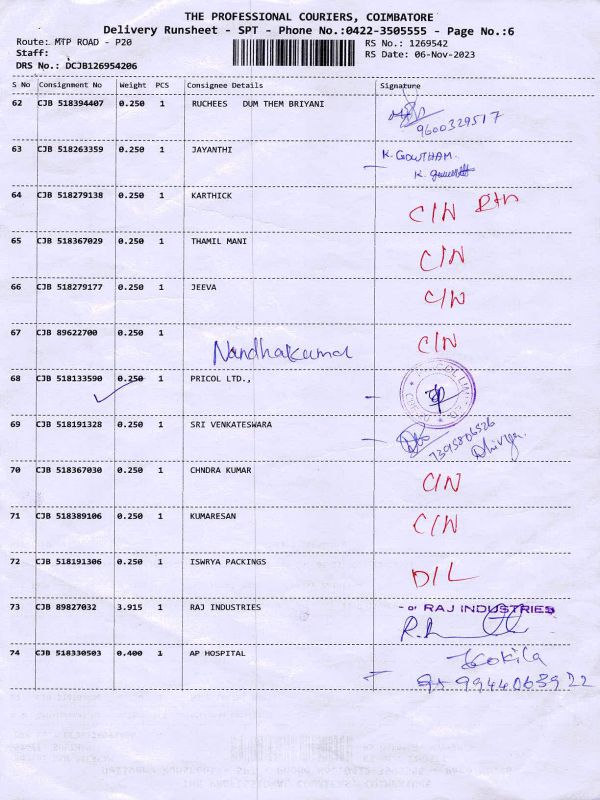 THE PROFESSIONAL COURIERS, COIMBATORE
Delivery Runsheet - SPT - Phone No.:0422-3505555 - Page No.:6
Route: MTP ROAD - P20 RS No.: 1269542
Staff: RS Date: 06-Nov-2023
DRS No.: DCJB126954206
S No Consignment No Weight PCS Consignee Details Signature
62 CJB 518394407 0.250 1 RUCHEES DUM THEM BRIYANI
9600329517
63 CJB 518263359 0.250 1 JAYANTHI K. GOWTHAM
K.
64 CJB 518279138 0.250 1 KARTHICK C/N Rtn
65 CJB 518367029 0.250 1 THAMIL MANI C/N
66 CJB 518279177 0.250 1 JEEVA C/N
67 CJB 89622700 0.250 1 Nandhakumar C/N
68 CJB 518133590 0.250 1 PRICOL LTD., PRICOL LIMITED
69 CJB 518191328 0.250 1 SRI VENKATESWARA
7395806526
Dhivya
70 CJB 518367030 0.250 1 CHNDRA KUMAR C/N
71 CJB 518389106 0.250 1 KUMARESAN C/N
72 CJB 518191306 0.250 1 ISWRYA PACKINGS D/L
73 CJB 89827032 3.915 1 RAJ INDUSTRIES RAJ INDUSTRIES
74 CJB 518330503 0.400 1 AP HOSPITAL Kokila
9944063922